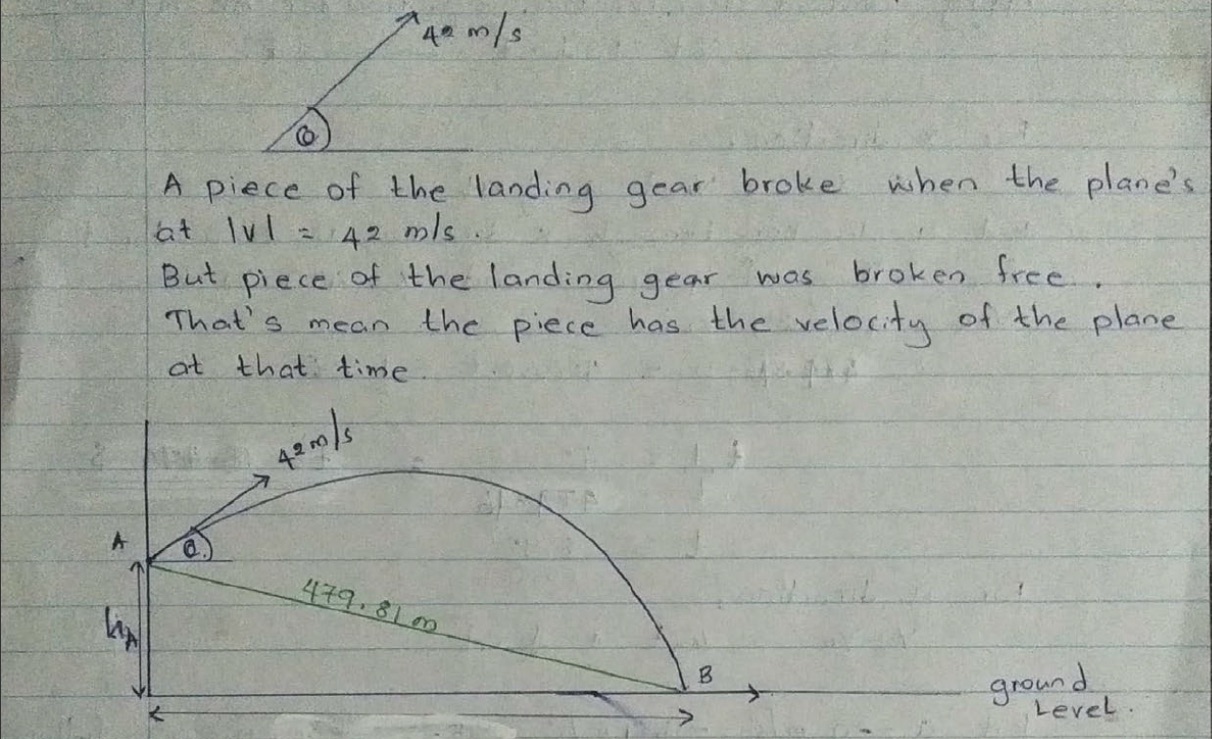 42 m/s
θ
A piece of the landing gear broke when the plane's
at |v| = 42 m/s.
But piece of the landing gear was broken free.
That's mean the piece has the velocity of the plane
at that time.
42 m/s
A
θ
479.81 m
hA
B
ground
Level.